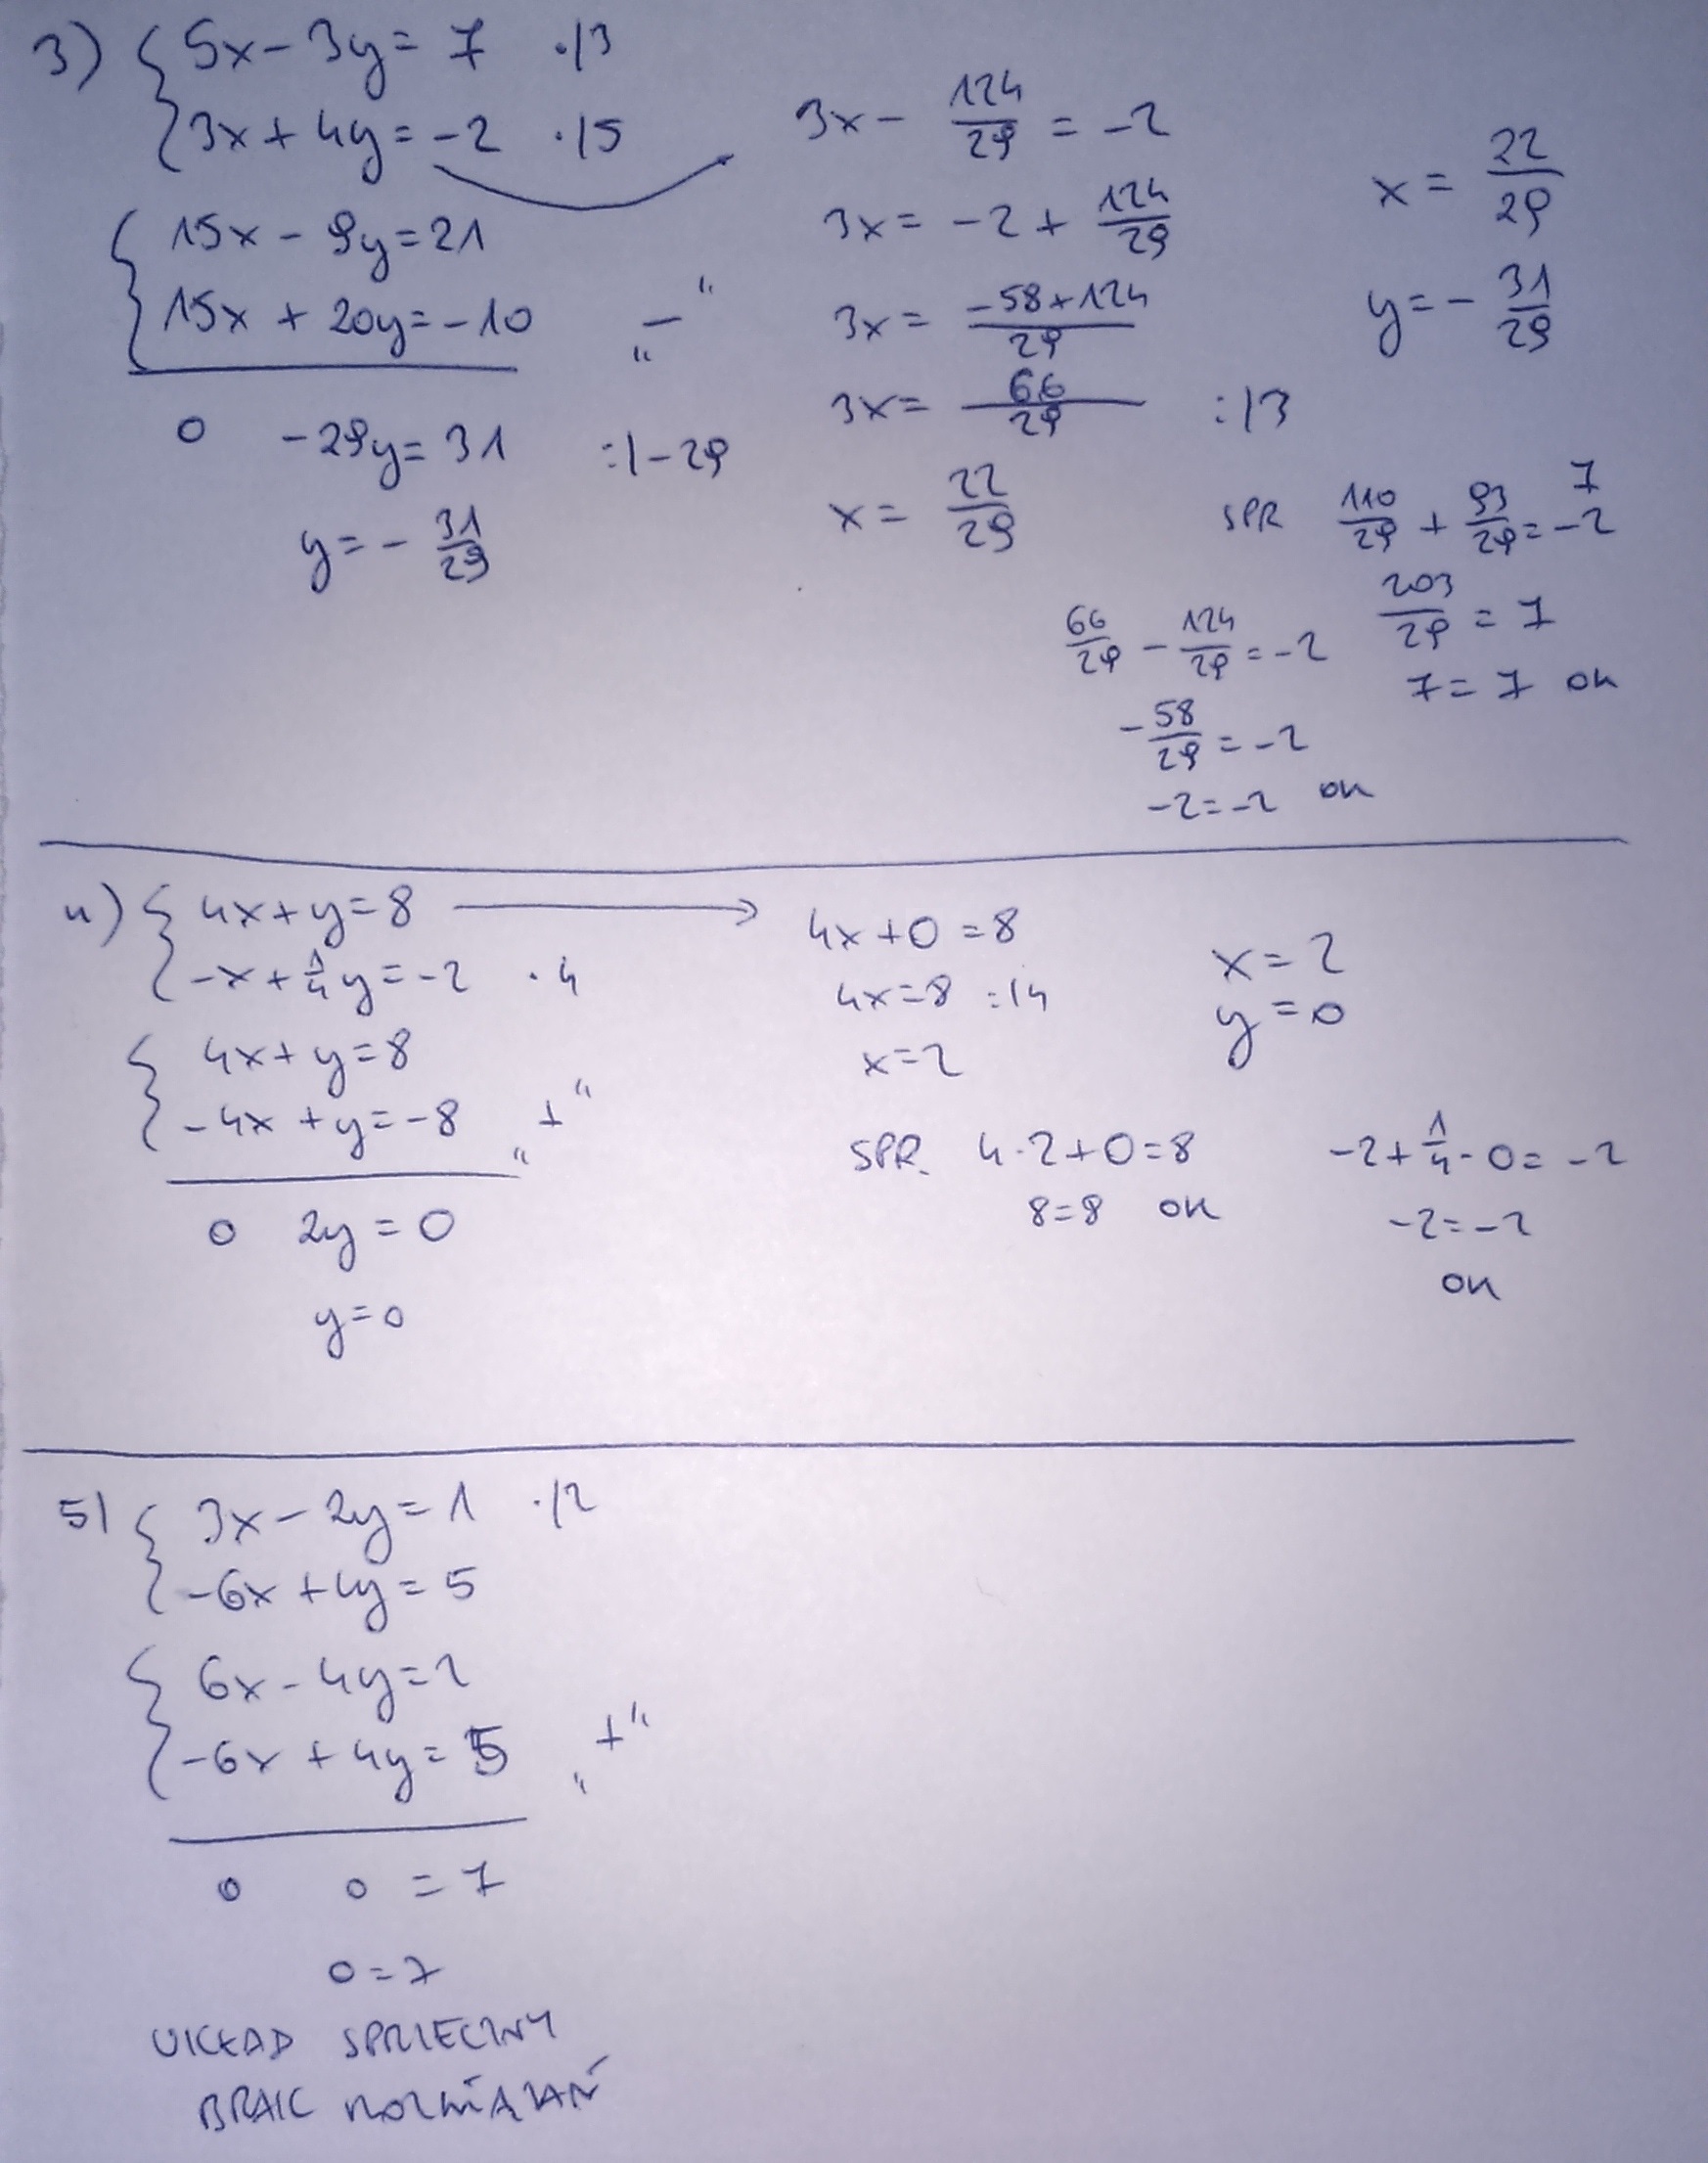 3) { 5x - 3y = 7 ·/3
{ 3x + 4y = -2 ·/5
{ 15x - 9y = 21
{ 15x + 20y = -10 „-“
0 -29y = 31 :/-29
y = - 31/29
3x - 124/29 = -2
3x = -2 + 124/29
3x = (-58+124)/29
3x = 66/29 :/3
x = 22/29
x = 22/29
y = - 31/29
SPR 110/29 + 93/29 = -2 7
203/29 = 7
7 = 7 ok
66/29 - 124/29 = -2
- 58/29 = -2
-2 = -2 ok
4) { 4x + y = 8
{ -x + 1/4 y = -2 · 4
{ 4x + y = 8
{ -4x + y = -8 „+“
0 2y = 0
y = 0
4x + 0 = 8
4x = 8 :/4
x = 2
x = 2
y = 0
SPR. 4·2+0=8
8=8 ok
-2 + 1/4 · 0 = -2
-2 = -2
ok
5) { 3x - 2y = 1 ·/2
{ -6x + 4y = 5
{ 6x - 4y = 2
{ -6x + 4y = 5 „+“
0 0 = 7
0 = 7
UKŁAD SPRZECZNY
BRAK ROZWIĄZAŃ